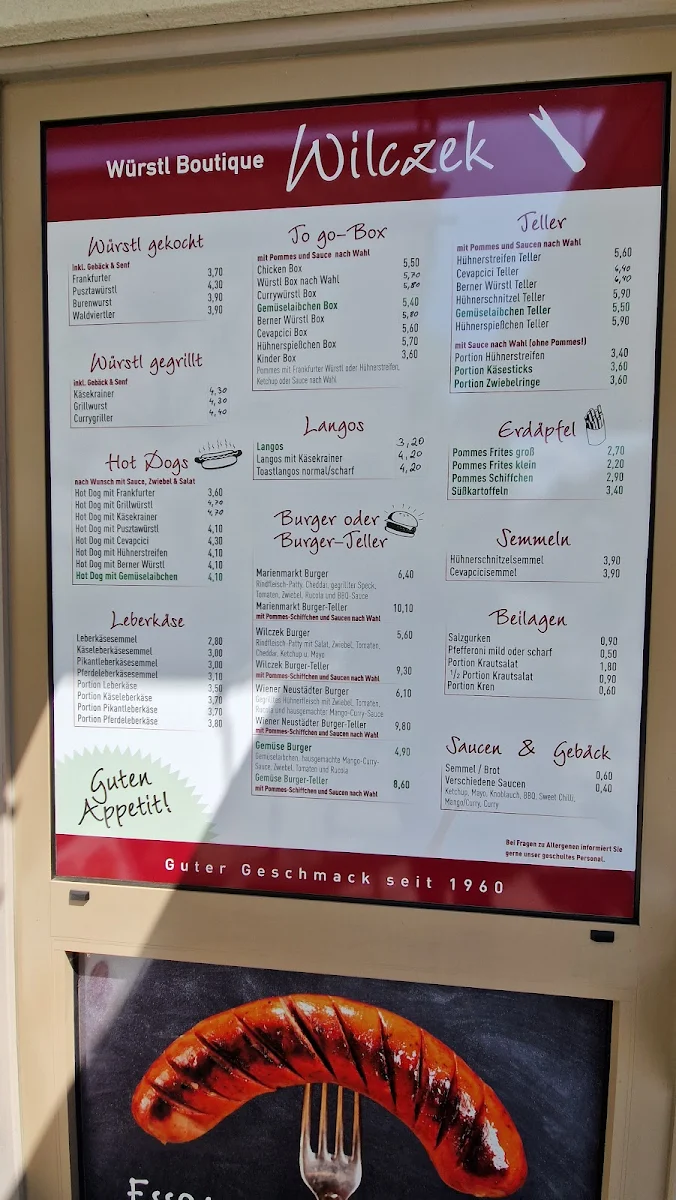 Würstl Boutique Wilczek
Würstl gekocht
inkl. Gebäck & Senf
Frankfurter 3,70
Pusztawürstl 4,30
Burenwurst 3,90
Waldviertler 3,90
Würstl gegrillt
inkl. Gebäck & Senf
Käsekrainer 4,30
Grillwurst 4,30
Currygriller 4,40
Hot Dogs
nach Wunsch mit Sauce, Zwiebel & Salat
Hot Dog mit Frankfurter 3,60
Hot Dog mit Grillwürstl 4,70
Hot Dog mit Käsekrainer 4,70
Hot Dog mit Pusztawürstl 4,10
Hot Dog mit Cevapcici 4,30
Hot Dog mit Hühnerstreifen 4,10
Hot Dog mit Berner Würstl 4,10
Hot Dog mit Gemüselaibchen 4,10
Leberkäse
Leberkäsesemmel 2,80
Käseleberkäsesemmel 3,00
Pikantleberkäsesemmel 3,00
Pferdeleberkäsesemmel 3,10
Portion Leberkäse 3,50
Portion Käseleberkäse 3,70
Portion Pikantleberkäse 3,70
Portion Pferdeleberkäse 3,80
Guten
Appetit!
To go-Box
mit Pommes und Sauce nach Wahl
Chicken Box 5,50
Würstl Box nach Wahl 5,70
Currywürstl Box 5,80
Gemüselaibchen Box 5,40
Berner Würstl Box 5,80
Cevapcici Box 5,60
Hühnerspießchen Box 5,70
Kinder Box 3,60
Pommes mit Frankfurter Würstl oder Hühnerstreifen,
Ketchup oder Sauce nach Wahl
Langos
Langos 3,20
Langos mit Käsekrainer 4,20
Toastlangos normal/scharf 4,20
Burger oder
Burger-Teller
Marienmarkt Burger 6,40
Rindfleisch-Patty, Cheddar, gegrillter Speck,
Tomaten, Zwiebel, Rucola und BBQ-Sauce
Marienmarkt Burger-Teller 10,10
mit Pommes-Schiffchen und Saucen nach Wahl
Wilczek Burger 5,60
Rindfleisch-Patty mit Salat, Zwiebel, Tomaten,
Cheddar, Ketchup u. Mayo
Wilczek Burger-Teller 9,30
mit Pommes-Schiffchen und Saucen nach Wahl
Wiener Neustädter Burger 6,10
Gegrilltes Hühnerfleisch mit Zwiebel, Tomaten,
Rucola und hausgemachter Mango-Curry-Sauce
Wiener Neustädter Burger-Teller 9,80
mit Pommes-Schiffchen und Saucen nach Wahl
Gemüse Burger 4,90
Gemüselaibchen, hausgemachte Mango-Curry-
Sauce, Zwiebel, Tomaten und Rucola
Gemüse Burger-Teller 8,60
mit Pommes-Schiffchen und Saucen nach Wahl
Teller
mit Pommes und Saucen nach Wahl
Hühnerstreifen Teller 5,60
Cevapcici Teller 6,40
Berner Würstl Teller 6,40
Hühnerschnitzel Teller 5,90
Gemüselaibchen Teller 5,50
Hühnerspießchen Teller 5,90
mit Sauce nach Wahl (ohne Pommes!)
Portion Hühnerstreifen 3,40
Portion Käsesticks 3,60
Portion Zwiebelringe 3,60
Erdäpfel
Pommes Frites groß 2,70
Pommes Frites klein 2,20
Pommes Schiffchen 2,90
Süßkartoffeln 3,40
Semmeln
Hühnerschnitzelsemmel 3,90
Cevapcicisemmel 3,90
Beilagen
Salzgurken 0,90
Pfefferoni mild oder scharf 0,50
Portion Krautsalat 1,80
1/2 Portion Krautsalat 0,90
Portion Kren 0,60
Saucen & Gebäck
Semmel / Brot 0,60
Verschiedene Saucen 0,40
Ketchup, Mayo, Knoblauch, BBQ, Sweet Chili,
Mango/Curry, Curry
Bei Fragen zu Allergenen informiert Sie
gerne unser geschultes Personal.
Guter Geschmack seit 1960